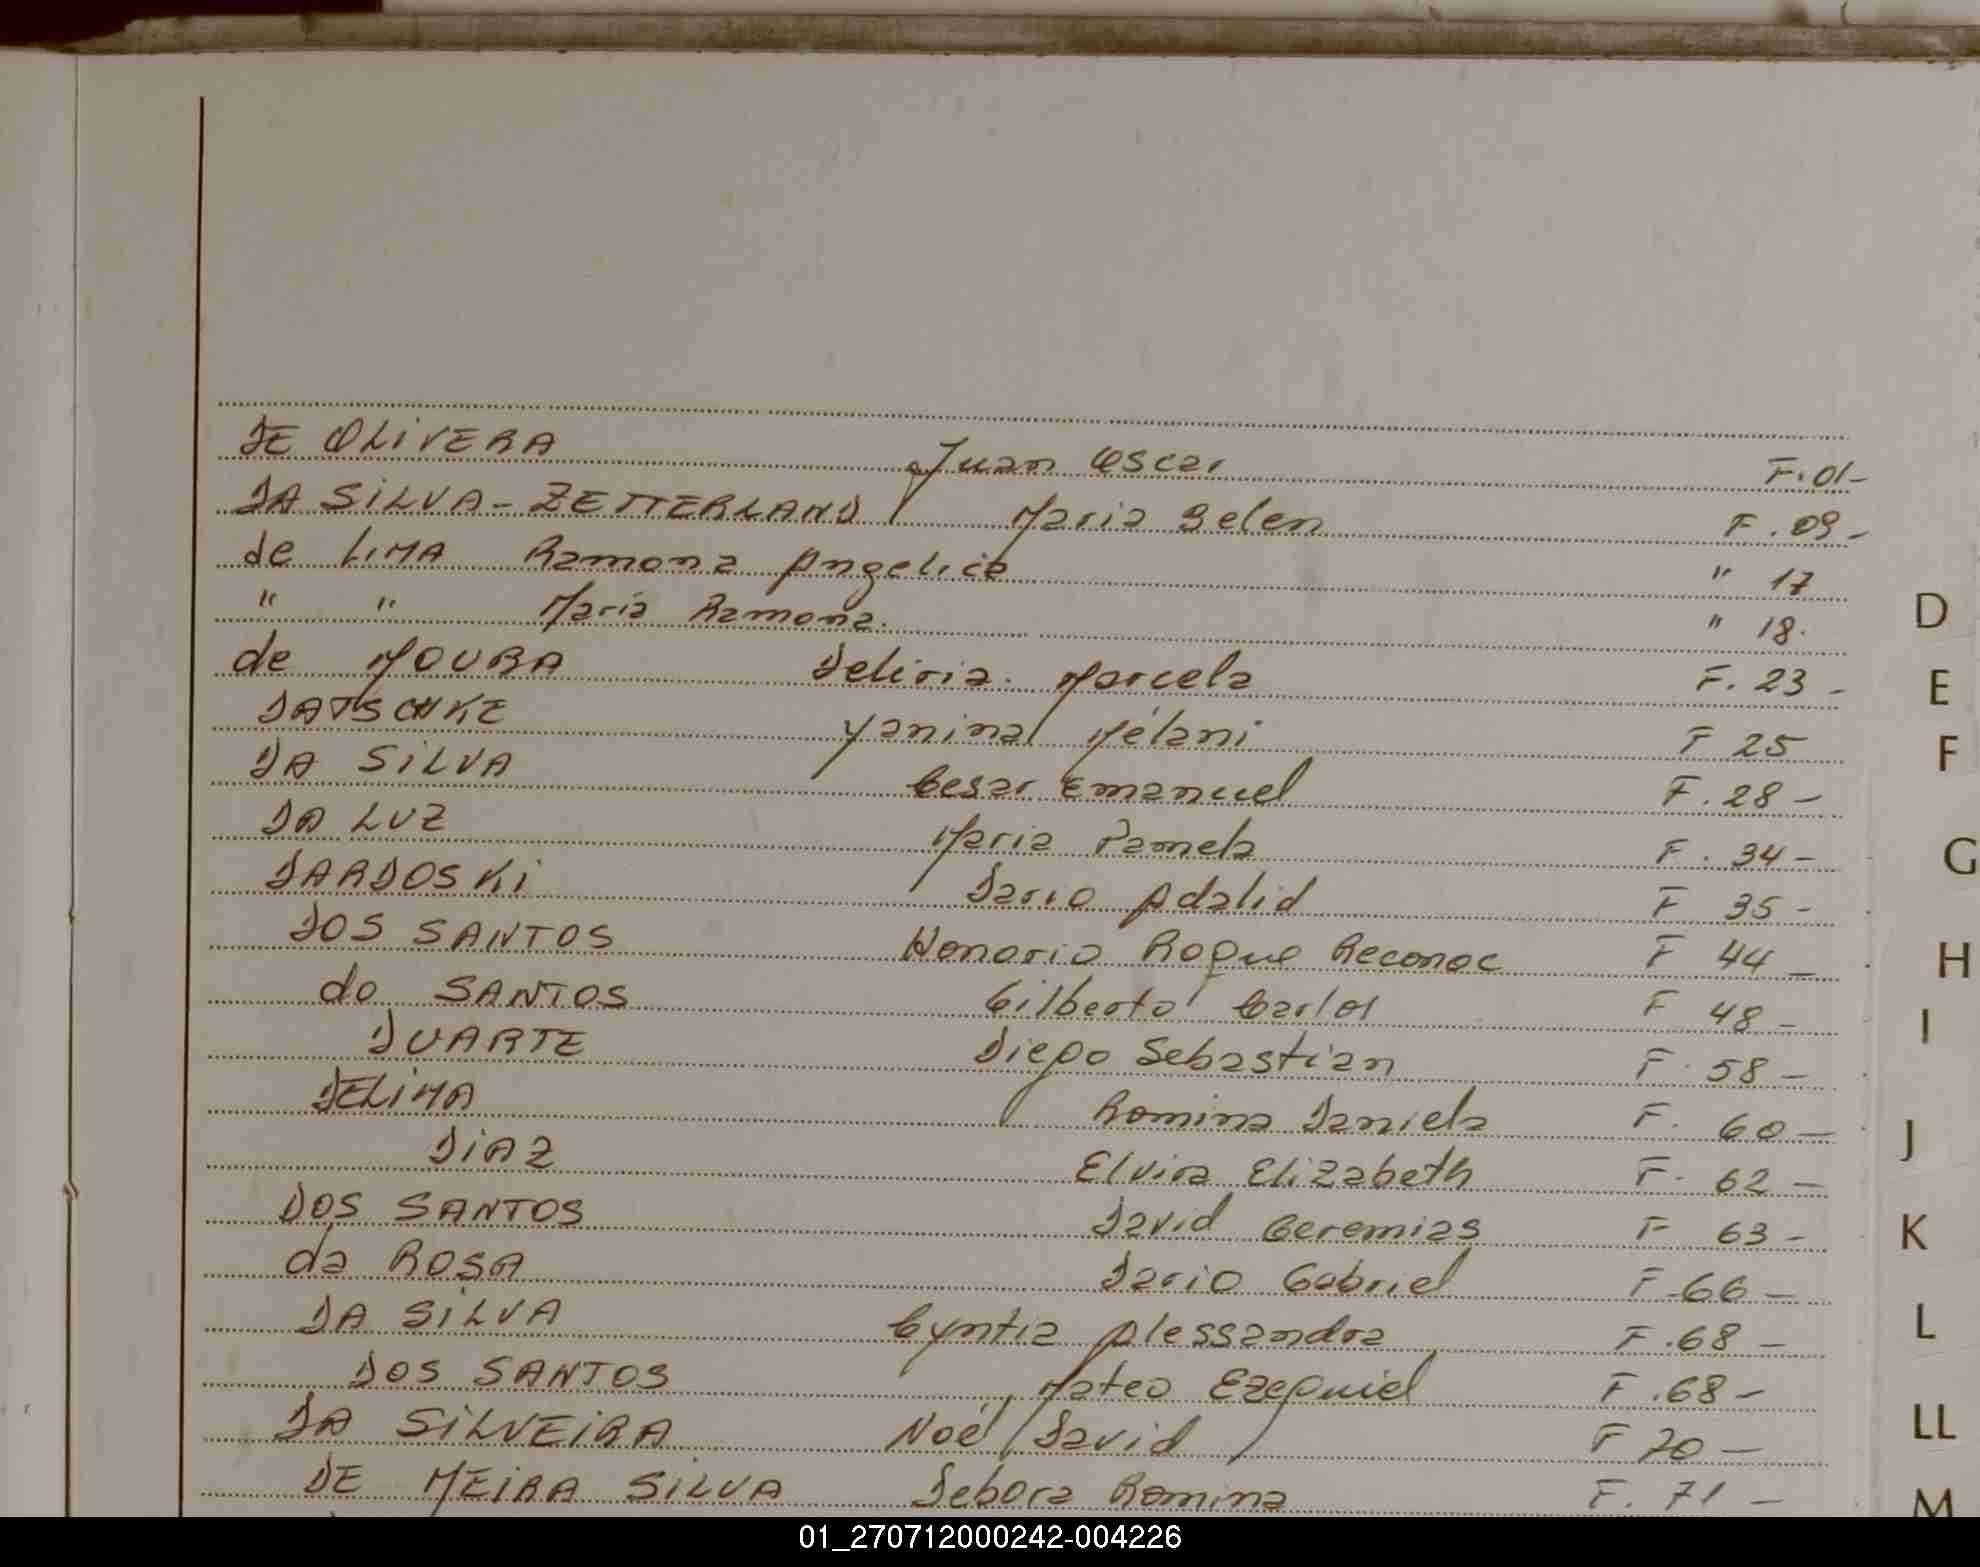 DE OLIVERA Juan Oscar F. 01-
DA SILVA - ZETTERLAND Maria Belen F. 09-
de LIMA Ramona Angelica " 17
" " Maria Ramona. " 18.
de MOURA Deliria Marcela F. 23-
DATSCHKE Yanina Mélani F 25
DA SILVA Cesar Emanuel F. 28-
DA LUZ Maria Pamela F. 34-
DARDOSKI Dario Adalid F 35-
DOS SANTOS Honorio Roque Reconoc F 44-
do SANTOS Gilberto Carlos F 48-
DUARTE Diego Sebastian F. 58-
DELIMA Romina Daniela F. 60-
DIAZ Elvira Elizabeth F. 62-
DOS SANTOS David Geremias F 63-
da ROSA Dario Gabriel F-66-
DA SILVA Cyntia Alessandra F.68-
DOS SANTOS Mateo Ezequiel F.68-
DA SILVEIRA Noé David F 70-
DE MEIRA SILVA Debora Romina F. 71-
D
E
F
G
H
I
J
K
L
LL
M
01_270712000242-004226